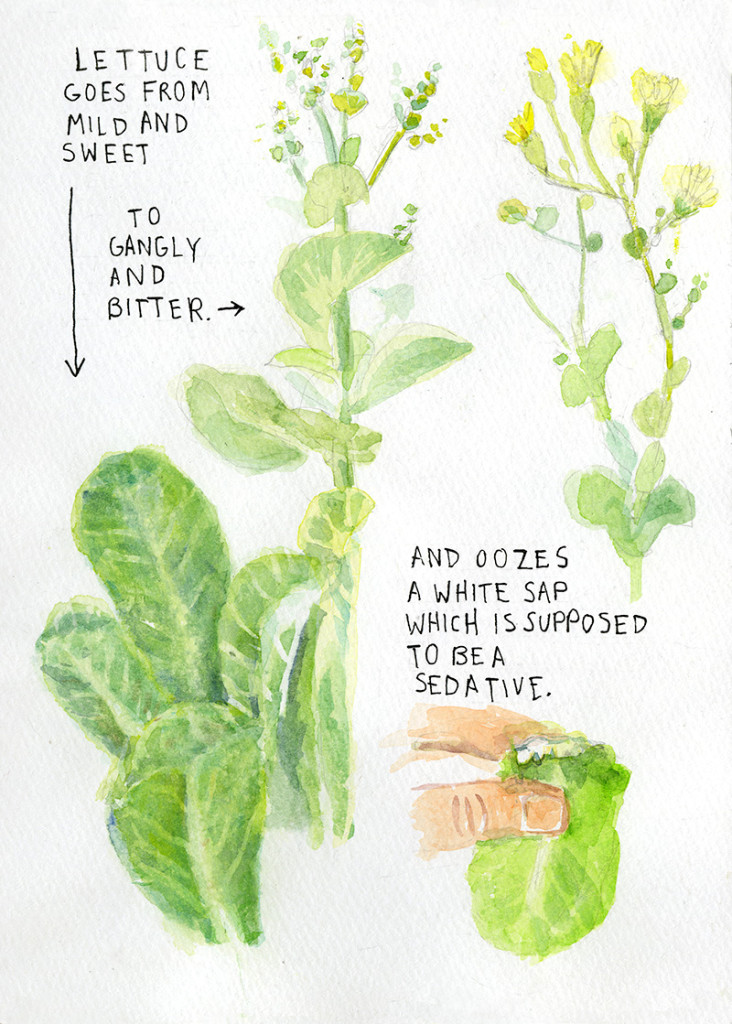 LETTUCE
GOES FROM
MILD AND
SWEET
TO
GANGLY
AND
BITTER. →
AND OOZES
A WHITE SAP
WHICH IS SUPPOSED
TO BE A
SEDATIVE.